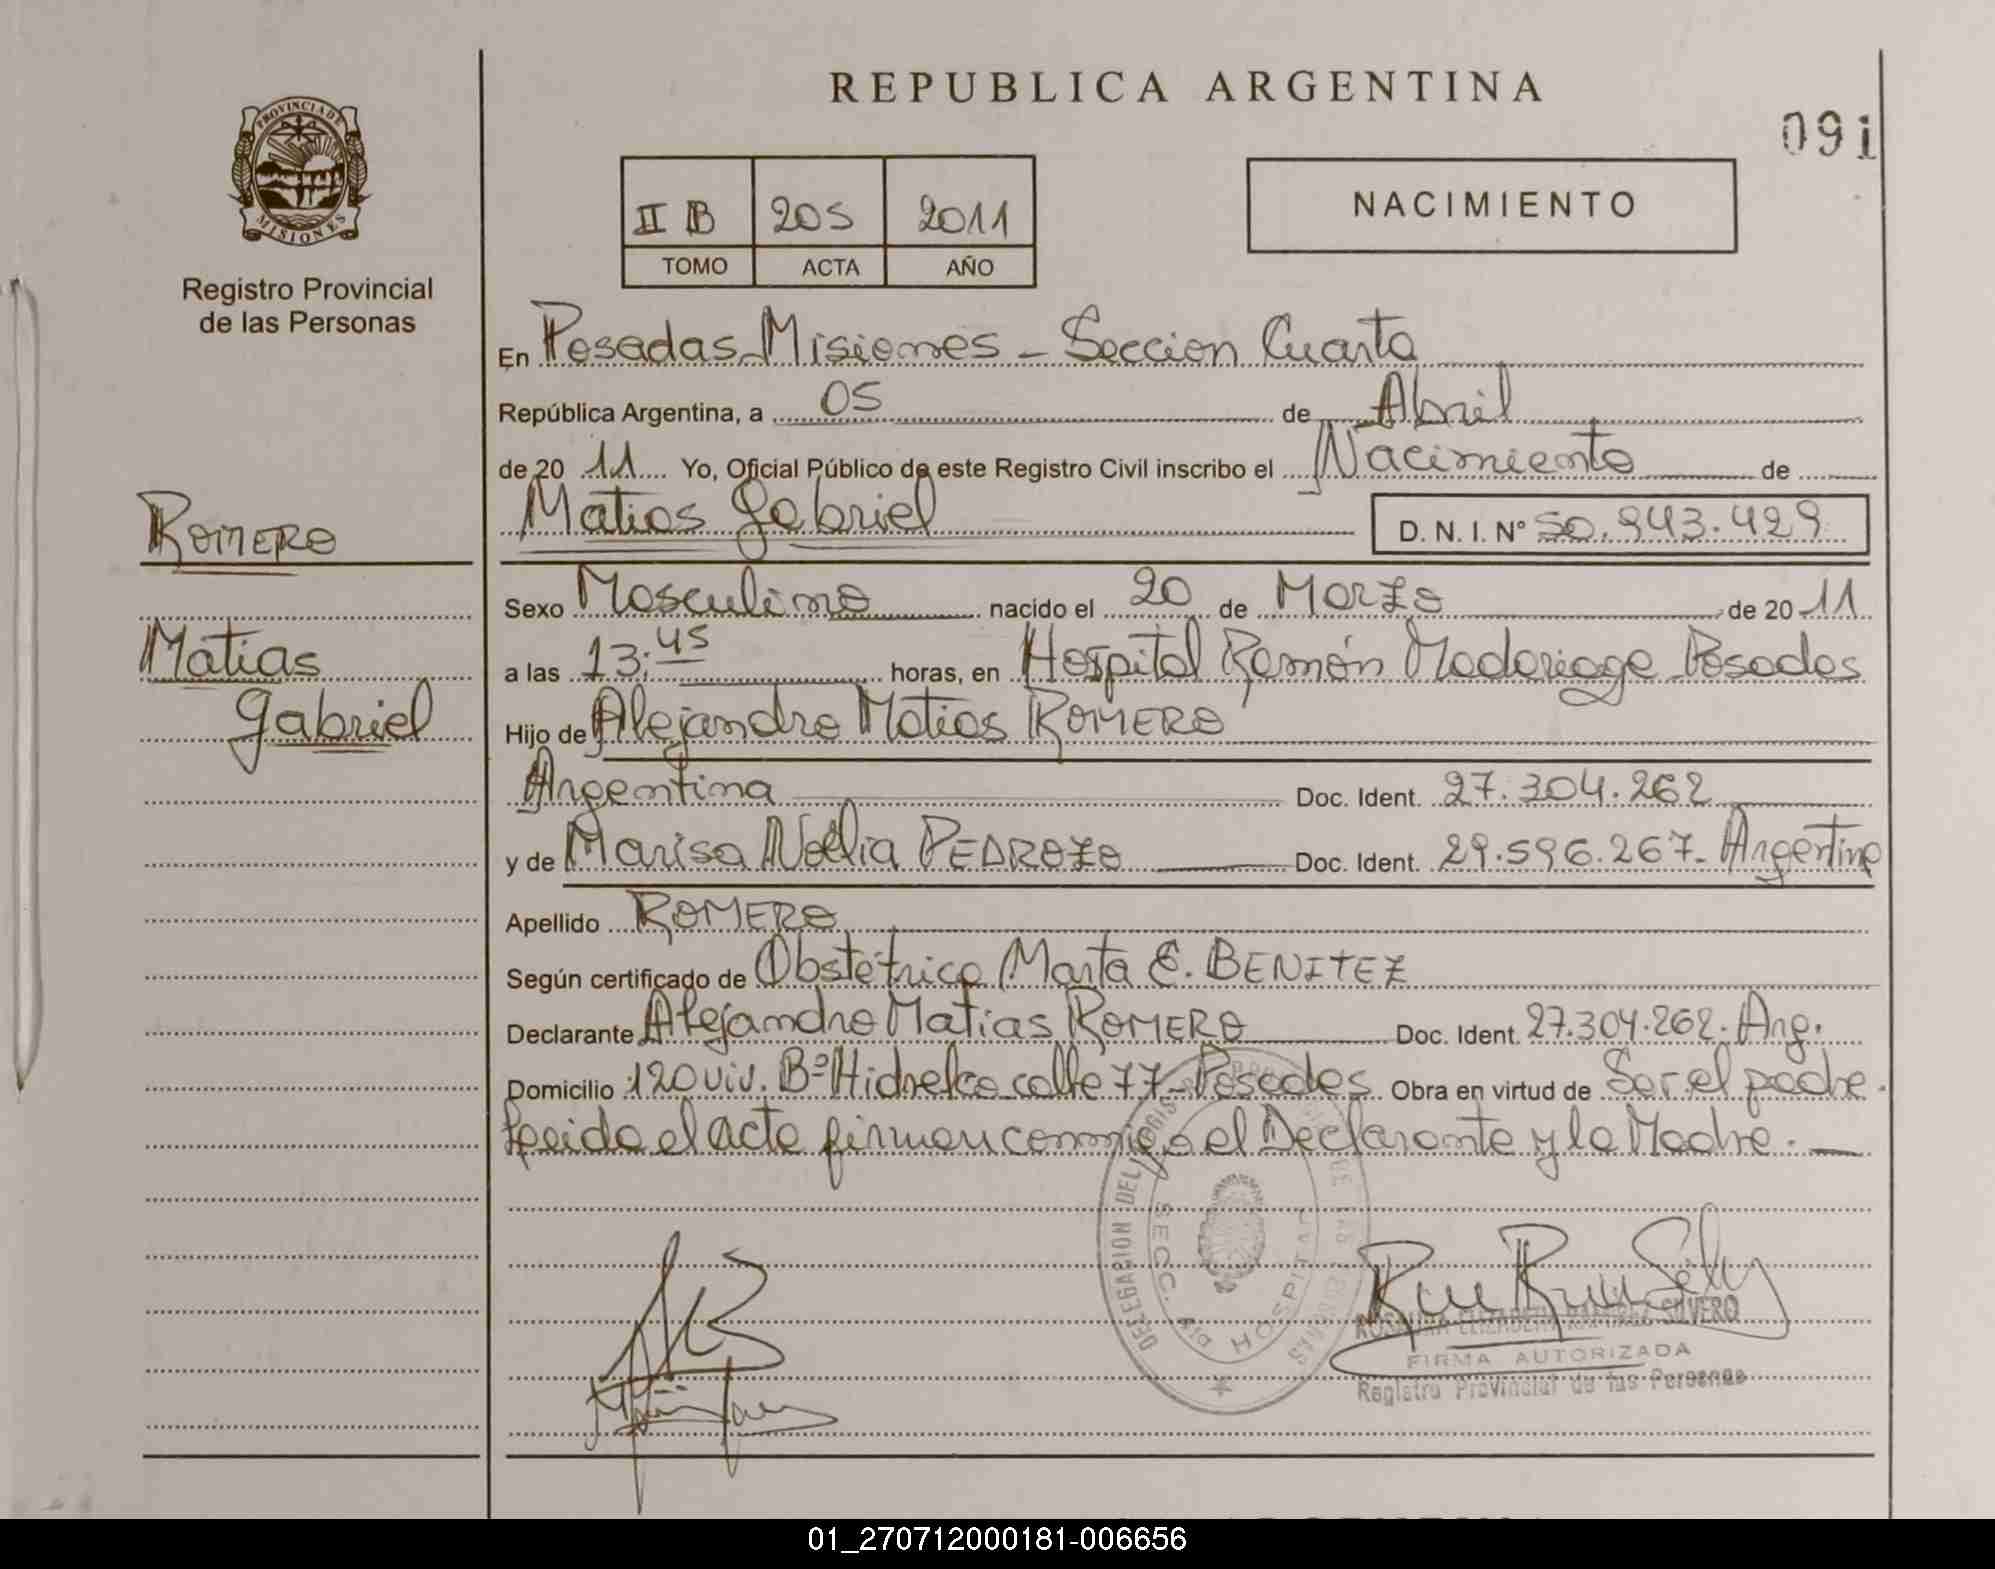 REPUBLICA ARGENTINA
091
PROVINCIA DE
MISIONES
Registro Provincial
de las Personas
II B 205 2011
TOMO ACTA AÑO
NACIMIENTO
En Posadas Misiones - Seccion Cuarta
República Argentina, a 05 de Abril
de 20 11 Yo, Oficial Público de este Registro Civil inscribo el Nacimiento de
Matias Gabriel D. N. I. Nº 50.943.429
ROMERO
Matias
Gabriel
Sexo Masculino nacido el 20 de Marzo de 20 11
a las 13:45 horas, en Hospital Ramón Madariaga - Posadas
Hijo de Alejandro Matias ROMERO
Argentina Doc. Ident. 27.304.262
y de Marisa Noelia PEDROZO Doc. Ident. 29.596.267- Argentina
Apellido ROMERO
Según certificado de Obstétrica Marta E. BENITEZ
Declarante Alejandro Matias ROMERO Doc. Ident. 27.304.262. Arg.
Domicilio 120 viv. Bº Hidrelco calle 77 - Posadas Obra en virtud de Ser el padre.
Leida el acta firman conmigo el Declarante y la Madre.
DELEGACION DEL REGIS DE LAS PERSONAS
SECC. 4ta HOSPITAL
ROSAURA ELIZABETH RAMIREZ SILVERO
FIRMA AUTORIZADA
Registro Provincial de las Personas
01_270712000181-006656